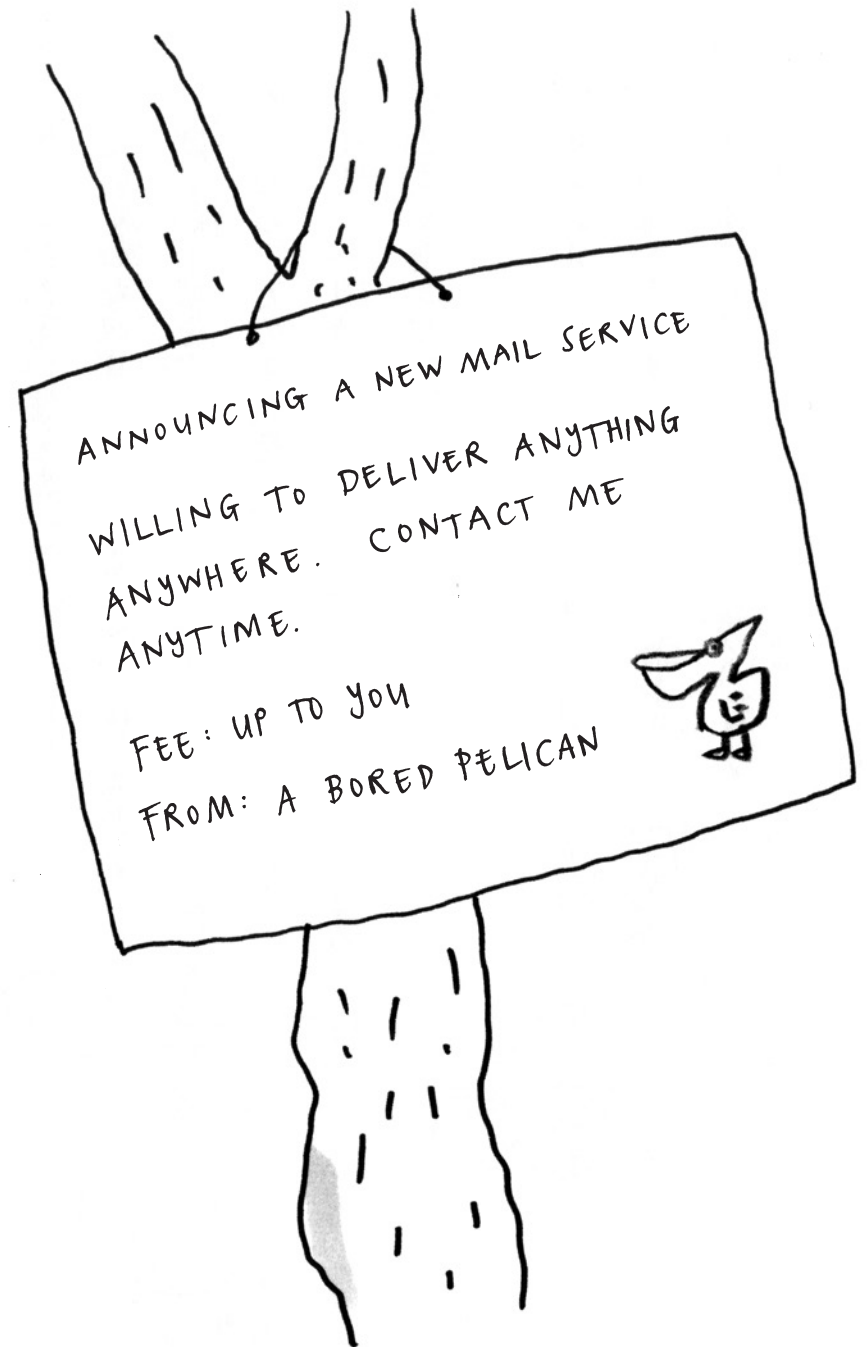 ANNOUNCING A NEW MAIL SERVICE
WILLING TO DELIVER ANYTHING
ANYWHERE. CONTACT ME
ANYTIME.
FEE: UP TO YOU
FROM: A BORED PELICAN